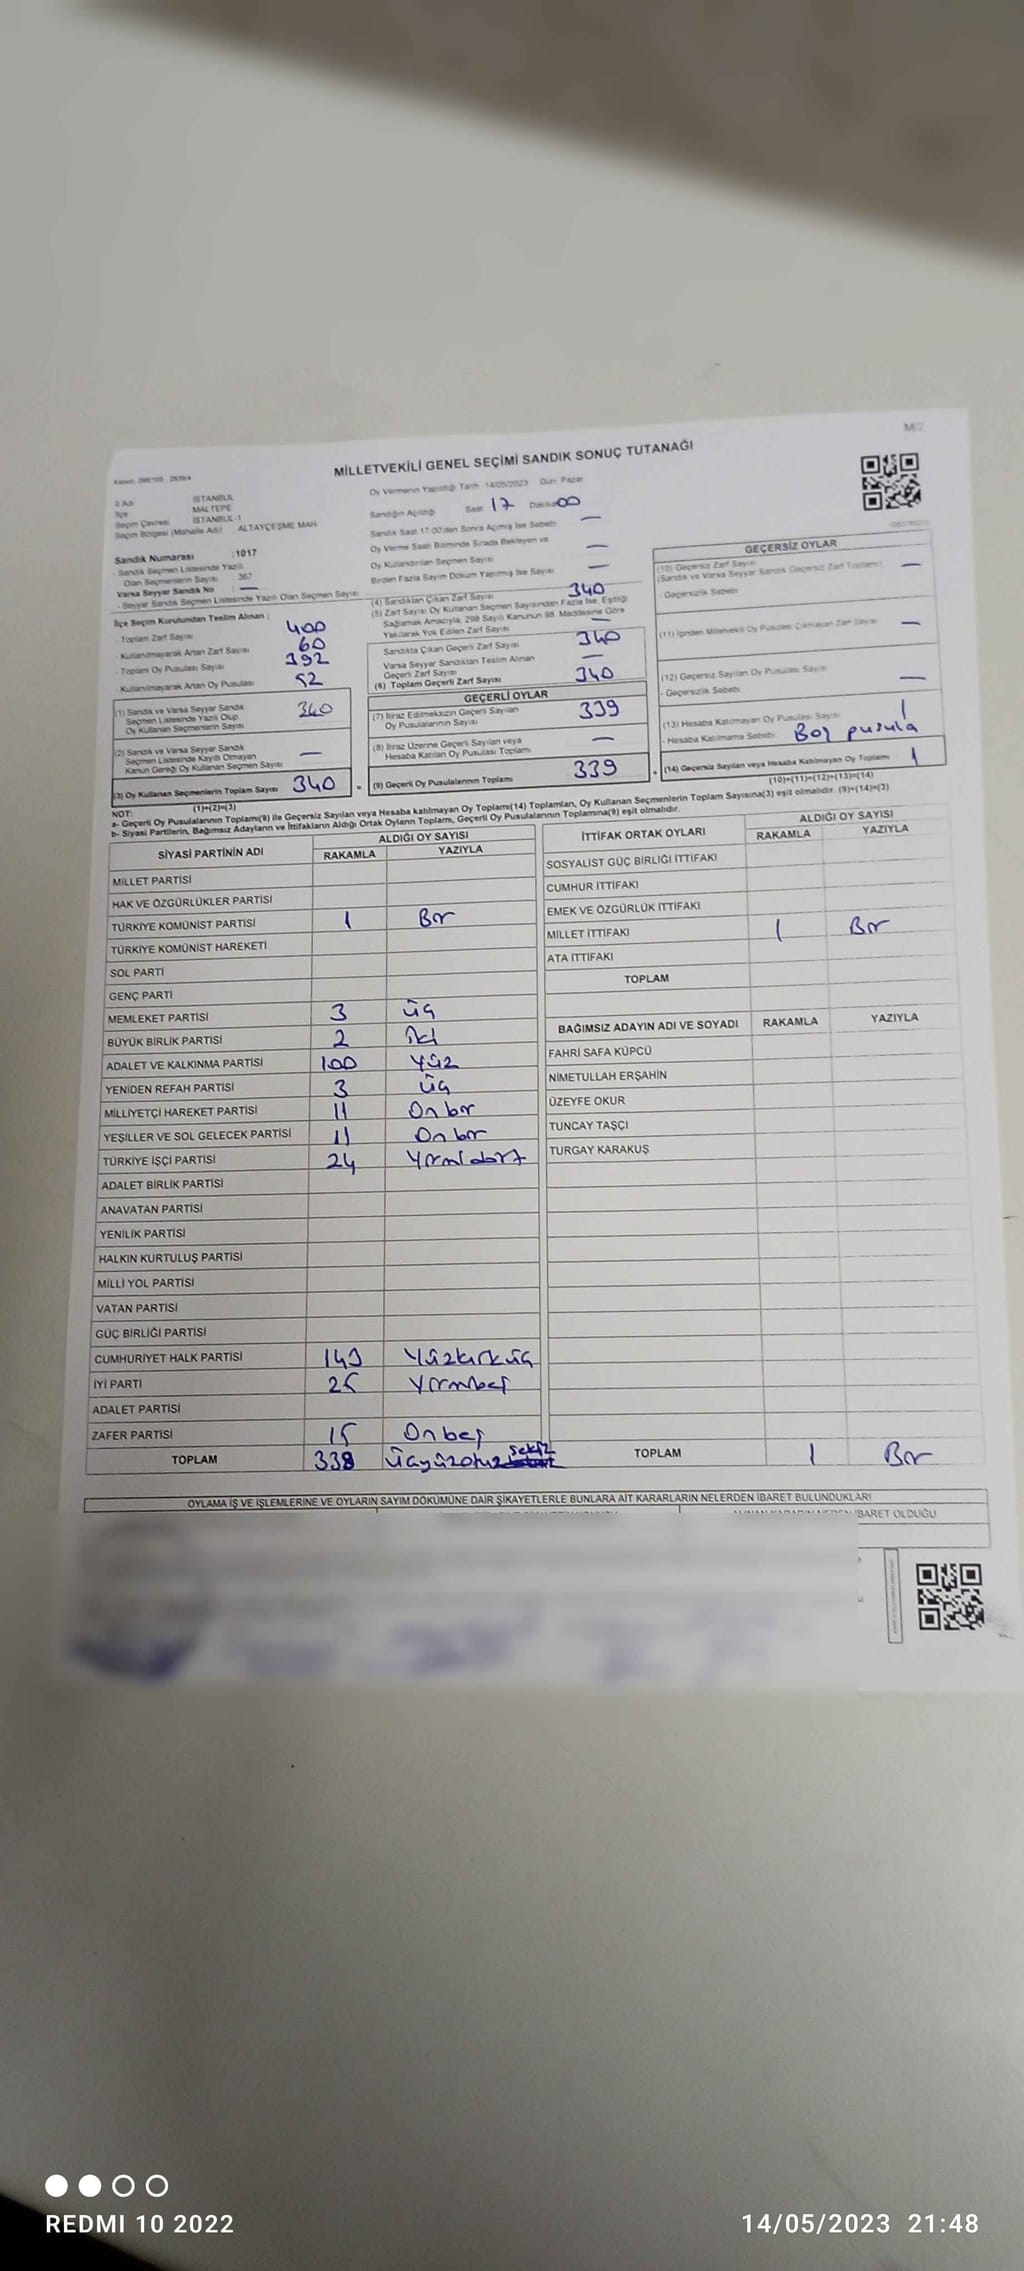 MİLLETVEKİLİ GENEL SEÇİMİ SANDIK SONUÇ TUTANAĞI
İl Adı İSTANBUL
İlçe MALTEPE
Seçim Çevresi İSTANBUL-1
Seçim Bölgesi (Mahalle Adı) ALTAYÇEŞME MAH
Sandık Numarası :1017
- Sandık Seçmen Listesinde Yazılı
Olan Seçmenlerin Sayısı : 367
Varsa Seyyar Sandık No —
- Seyyar Sandık Seçmen Listesinde Yazılı Olan Seçmen Sayısı
Oy Vermenin Yapıldığı Tarih 14/05/2023 Gün Pazar
Sandığın Açıldığı Saat 17 Dakika 00
Sandık Saat 17:00'den Sonra Açılmış İse Sebebi —
Oy Verme Saati Bitiminde Sırada Bekleyen ve
Oy Kullandırılan Seçmen Sayısı —
Birden Fazla Sayım Döküm Yapılmış İse Sayısı —
İlçe Seçim Kurulundan Teslim Alınan :
- Toplam Zarf Sayısı 400
- Kullanılmayarak Artan Zarf Sayısı 60
- Toplam Oy Pusulası Sayısı 392
- Kullanılmayarak Artan Oy Pusulası 52
(1) Sandık ve Varsa Seyyar Sandık
Seçmen Listesinde Yazılı Olup
Oy Kullanan Seçmenlerin Sayısı 340
(2) Sandık ve Varsa Seyyar Sandık
Seçmen Listesinde Kayıtlı Olmayan
Kanun Gereği Oy Kullanan Seçmen Sayısı —
(3) Oy Kullanan Seçmenlerin Toplam Sayısı 340
(1)+(2)=(3)
(4) Sandıktan Çıkan Zarf Sayısı 340
(5) Zarf Sayısı Oy Kullanan Seçmen Sayısından Fazla İse, Eşitliği
Sağlamak Amacıyla, 298 Sayılı Kanunun 98. Maddesine Göre
Yakılarak Yok Edilen Zarf Sayısı —
Sandıkta Çıkan Geçerli Zarf Sayısı 340
Varsa Seyyar Sandıktan Teslim Alınan
Geçerli Zarf Sayısı —
(6) Toplam Geçerli Zarf Sayısı 340
GEÇERLİ OYLAR
(7) İtiraz Edilmeksizin Geçerli Sayılan
Oy Pusulalarının Sayısı 339
(8) İtiraz Üzerine Geçerli Sayılan veya
Hesaba Katılan Oy Pusulası Toplamı —
(9) Geçerli Oy Pusulalarının Toplamı 339
GEÇERSİZ OYLAR
(10) Geçersiz Zarf Sayısı
(Sandık ve Varsa Seyyar Sandık Geçersiz Zarf Toplamı) —
- Geçersizlik Sebebi
(11) İçinden Milletvekili Oy Pusulası Çıkmayan Zarf Sayısı —
(12) Geçersiz Sayılan Oy Pusulası Sayısı —
- Geçersizlik Sebebi
(13) Hesaba Katılmayan Oy Pusulası Sayısı 1
- Hesaba Katılmama Sebebi Boş pusula
(14) Geçersiz Sayılan veya Hesaba Katılmayan Oy Toplamı 1
(10)+(11)+(12)+(13)=(14)
NOT:
a- Geçerli Oy Pusulalarının Toplamı(9) ile Geçersiz Sayılan veya Hesaba katılmayan Oy Toplamı(14) Toplamları, Oy Kullanan Seçmenlerin Toplam Sayısına(3) eşit olmalıdır. (9)+(14)=(3)
b- Siyasi Partilerin, Bağımsız Adayların ve İttifakların Aldığı Ortak Oyların Toplamı, Geçerli Oy Pusulalarının Toplamına(9) eşit olmalıdır.
SİYASİ PARTİNİN ADI ALDIĞI OY SAYISI
RAKAMLA YAZIYLA
MİLLET PARTİSİ
HAK VE ÖZGÜRLÜKLER PARTİSİ
TÜRKİYE KOMÜNİST PARTİSİ 1 Bir
TÜRKİYE KOMÜNİST HAREKETİ
SOL PARTİ
GENÇ PARTİ
MEMLEKET PARTİSİ 3 üç
BÜYÜK BİRLİK PARTİSİ 2 iki
ADALET VE KALKINMA PARTİSİ 100 Yüz
YENİDEN REFAH PARTİSİ 3 üç
MİLLİYETÇİ HAREKET PARTİSİ 11 Onbir
YEŞİLLER VE SOL GELECEK PARTİSİ 11 Onbir
TÜRKİYE İŞÇİ PARTİSİ 24 Yirmidört
ADALET BİRLİK PARTİSİ
ANAVATAN PARTİSİ
YENİLİK PARTİSİ
HALKIN KURTULUŞ PARTİSİ
MİLLİ YOL PARTİSİ
VATAN PARTİSİ
GÜÇ BİRLİĞİ PARTİSİ
CUMHURİYET HALK PARTİSİ 143 Yüzkırküç
İYİ PARTİ 25 Yirmibeş
ADALET PARTİSİ
ZAFER PARTİSİ 15 Onbeş
TOPLAM 338 üçyüzotuz sekiz
İTTİFAK ORTAK OYLARI ALDIĞI OY SAYISI
RAKAMLA YAZIYLA
SOSYALİST GÜÇ BİRLİĞİ İTTİFAKI
CUMHUR İTTİFAKI
EMEK VE ÖZGÜRLÜK İTTİFAKI
MİLLET İTTİFAKI 1 Bir
ATA İTTİFAKI
TOPLAM
BAĞIMSIZ ADAYIN ADI VE SOYADI RAKAMLA YAZIYLA
FAHRİ SAFA KÜPCÜ
NİMETULLAH ERŞAHİN
ÜZEYFE OKUR
TUNCAY TAŞÇI
TURGAY KARAKUŞ
TOPLAM 1 Bir
OYLAMA İŞ VE İŞLEMLERİNE VE OYLARIN SAYIM DÖKÜMÜNE DAİR ŞİKAYETLERLE BUNLARA AİT KARARLARIN NELERDEN İBARET BULUNDUKLARI
İBARET OLDUĞU
REDMI 10 2022
14/05/2023 21:48